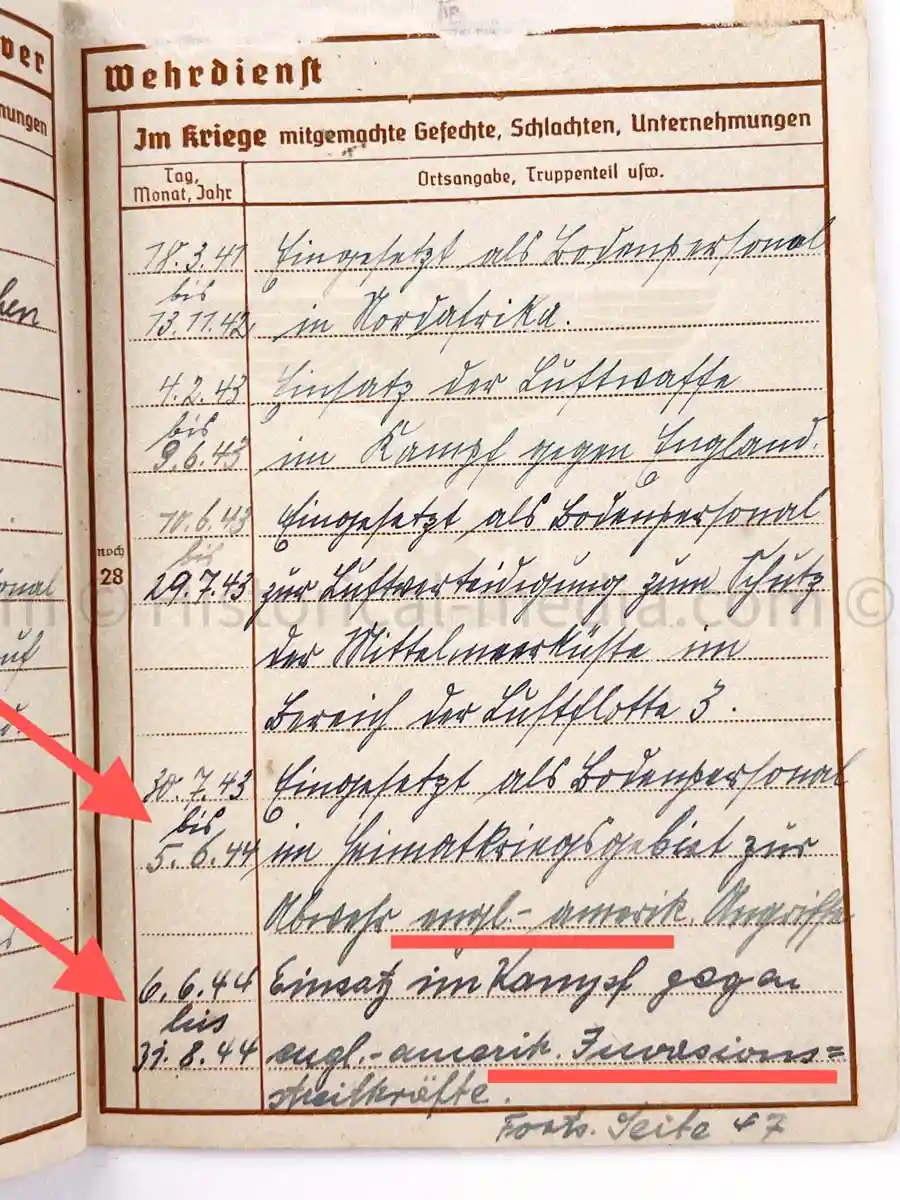 ver
nungen
hen
onal
uf
Wehrdienst
Im Kriege mitgemachte Gefechte, Schlachten, Unternehmungen
Tag, Monat, Jahr
Ortsangabe, Truppenteil usw.
noch 28
18.3.41 Eingesetzt als Bodenpersonal
bis
13.11.42 in Nordafrika.
4.2.43 Einsatz der Luftwaffe
bis
9.6.43 im Kampf gegen England.
10.6.43 Eingesetzt als Bodenpersonal
bis
29.7.43 zur Luftverteidigung zum Schutz
der Mittelmeerküste im
Bereich der Luftflotte 3.
30.7.43 Eingesetzt als Bodenpersonal
bis
5.6.44 im Heimatkriegsgebiet zur
Abwehr engl.-amerik. Angriffe
6.6.44 Einsatz im Kampf gegen
bis
31.8.44 engl.-amerik. Invasions=
streitkräfte.
Forts. Seite 47
m © Historical-media.com ©